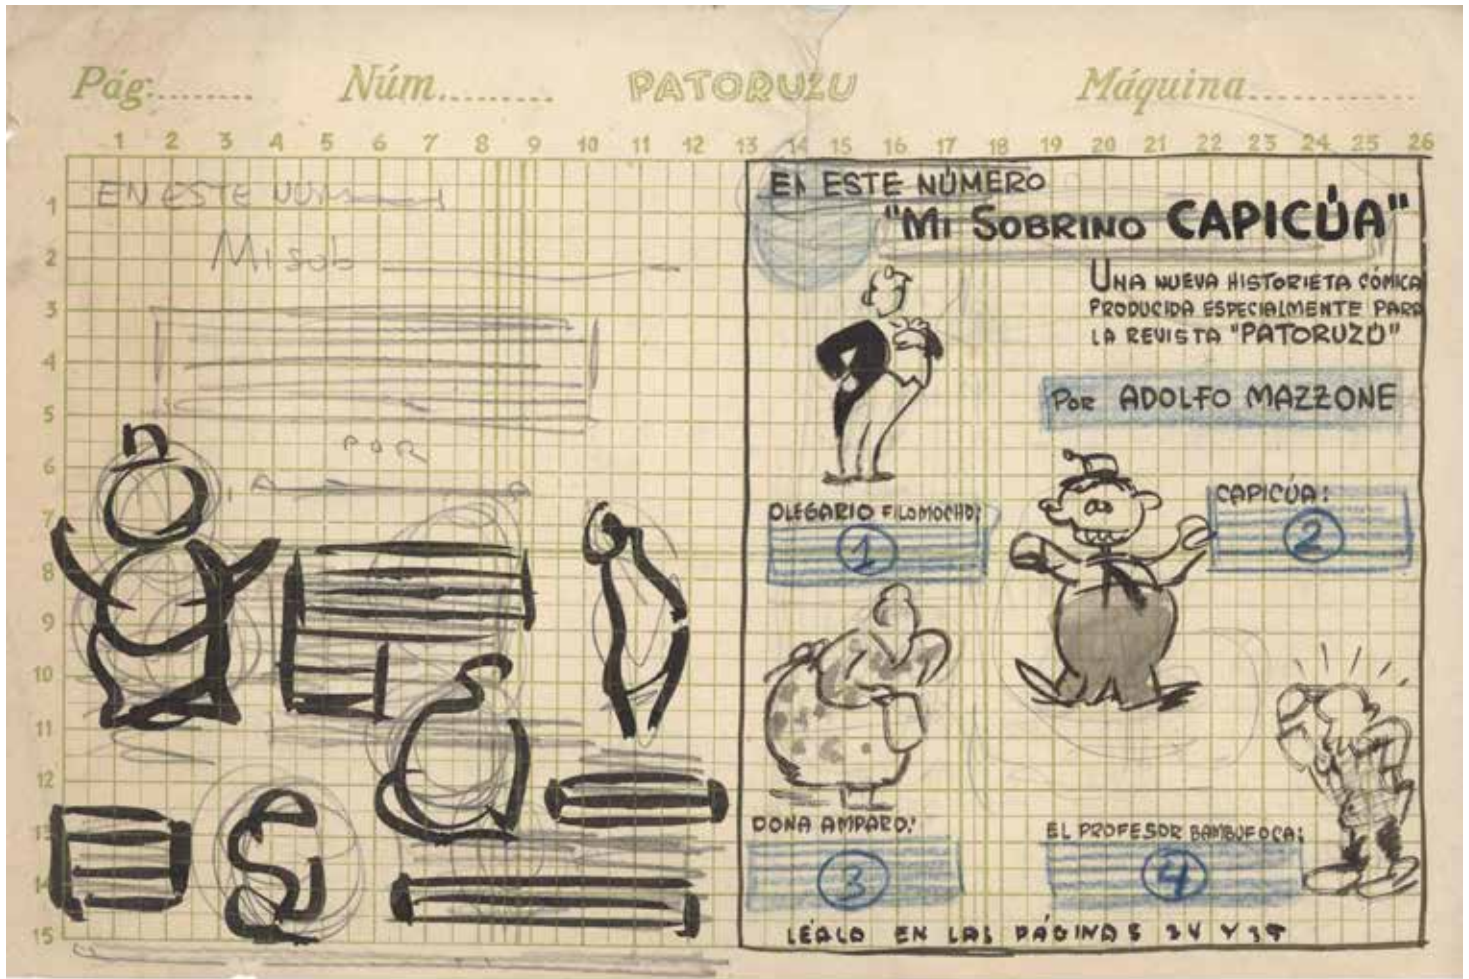 Pág:........ Núm......... PATORUZU Máquina............
1 2 3 4 5 6 7 8 9 10 11 12 13 14 15 16 17 18 19 20 21 22 23 24 25 26
1
2
3
4
5
6
7
8
9
10
11
12
13
14
15
EN ESTE NUM
Mi sob
POR
EN ESTE NÚMERO
"MI SOBRINO CAPICÚA"
UNA NUEVA HISTORIETA CÓMICA
PRODUCIDA ESPECIALMENTE PARA
LA REVISTA "PATORUZÚ"
POR ADOLFO MAZZONE
OLEGARIO FILOMOCHO:
1
CAPICÚA:
2
DOÑA AMPARO:
3
EL PROFESOR BAMBUFOCA:
4
LÉALO EN LAS PÁGINAS 34 Y